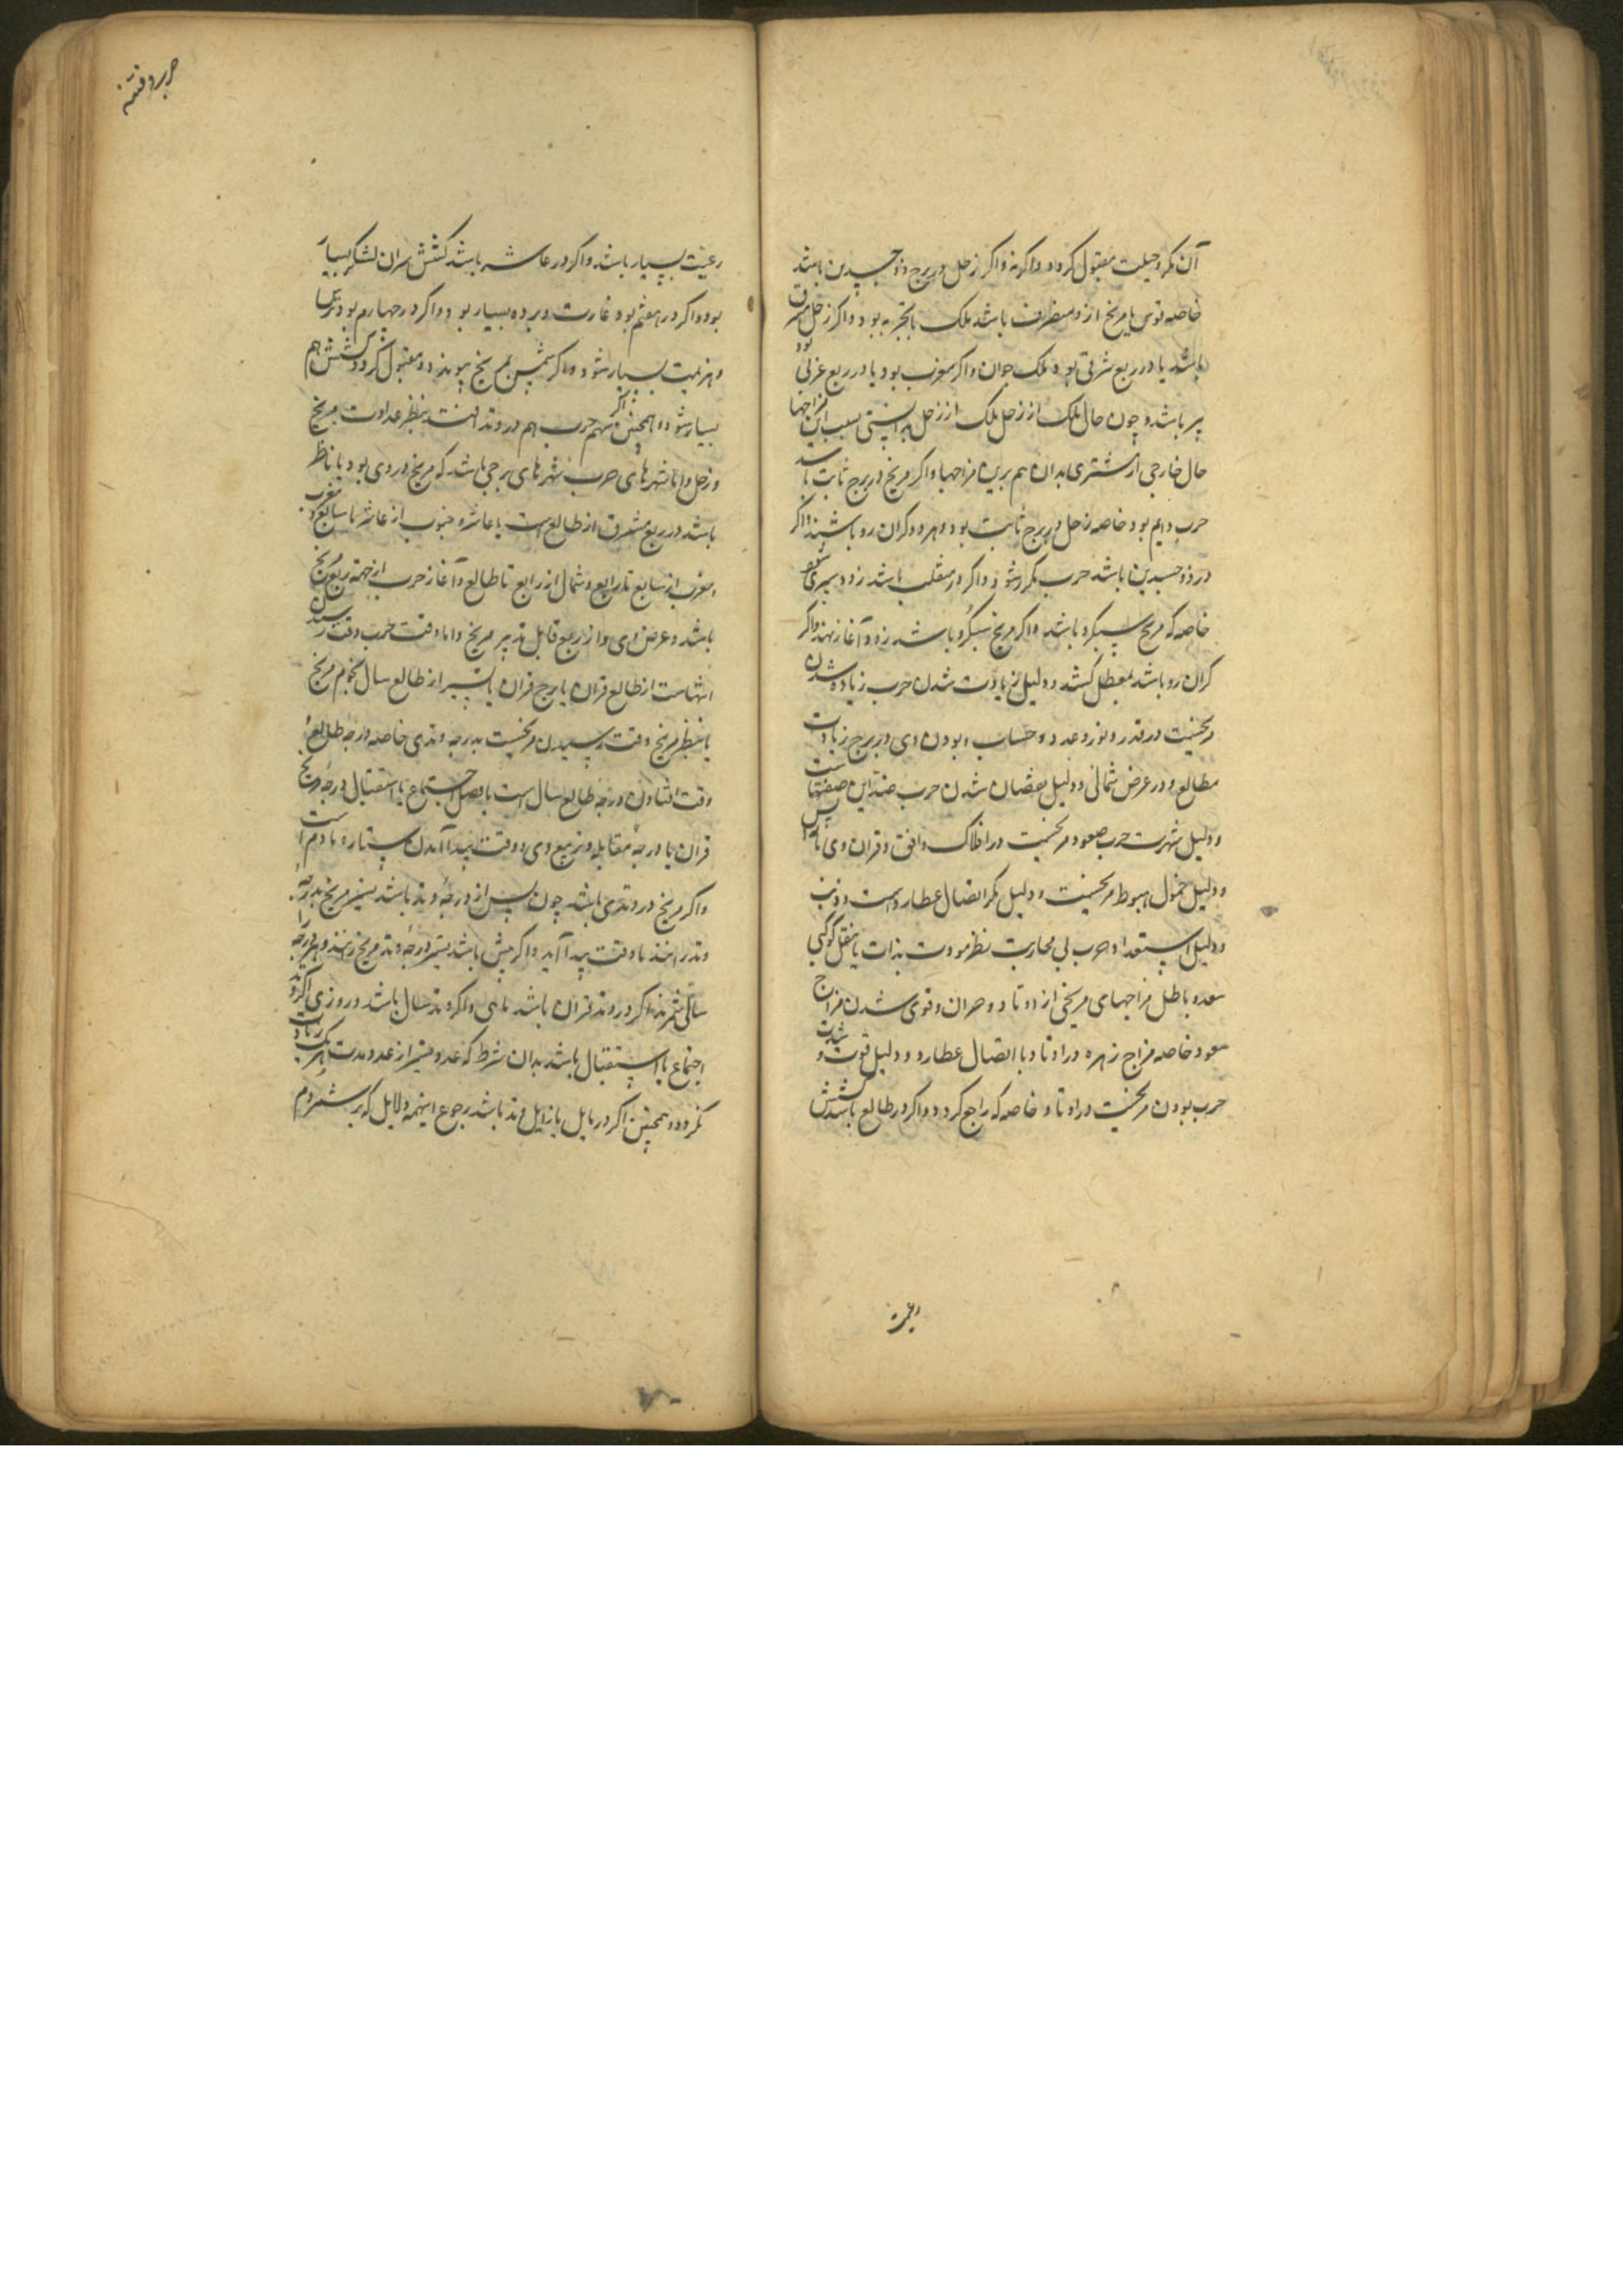 آن مکر و حیلت مقبول کردد و اکر نه و اکر زحل در برج ذو جسدین باشد
خاصه قوس یا مریخ ازو منصرف باشد ملک با تجربه بود و اکر زحل مشرق
باشد یا در ربع شرقی بود ملک جوان و اکر مغرب بود یا در ربع غربی بود
پیر باشد و چون حال ملک از زحل ملک از زحل بدانستی بسبب این مزاجها
حال خارجی از مشتری بدان هم برین مزاجها و اکر مریخ در برج ثابت باشد
حرب دایم بود خاصه زحل در برج ثابت بود و هر دو کران رو باشند و اکر
در ذو جسدین باشد حرب مکرر شود و اکر در منقلب باشد زود سپری شود
خاصه که مریخ سبکرو باشد و اکر مریخ سبکرو باشد زود آغاز نهند و اکر
کران رو باشد بمعطل کشد و دلیل زیادت شدن حرب زیاده شدن
مریخست در قدر و نور و عدد و حساب و بودن وی در برج زیادت
مطالع و در عرض شمالی و دلیل نقصان شدن حرب ضد این صفتهاست
و دلیل شهرت حرب صعود مریخست در افلاک و افق و قران وی با
و دلیل خمول هبوط مریخست و دلیل مکر اتصال عطاردست و ذنب
و دلیل استعداد حرب بی محاربت نظر مودت بذات یا بنقل کوکبی
سعد و باطل مزاجهای مریخی از اوتاد و حران و قوی شدن مزاج
سعود خاصه مزاج زهره در اوتاد با اتصال عطارد و دلیل قوت و شدت
حرب بودن مریخست در اوتاد خاصه که راجع کردد و اکر در طالع باشد کشش
رعیت
رعیت بسیار باشد و اکر در عاشر باشد کشتن سران لشکر بسیار
بود و اکر در هفتم بود غارت و برده بسیار بود و اکر در چهارم بود ترس
و هزیمت بسیار شود و اکر شمس بمریخ پیوندد و مقبول کردد کشش هم
بسیار شود و همچنین اکر سهم حرب هم در وتد افتد بنظر عداوت مریخ
و زحل و اما شهرهای حرب شهرهای برجی باشد که مریخ در وی بود یا ناظر
باشد در ربع مشرق از طالع است یا عاشر و جنوب از عاشر تا سابع و مغرب
مغرب از سابع تا رابع و شمال از رابع تا طالع و آغاز حرب از جهة ربع مریخ
باشد و عرض وی و از ربع قابل تدبیر مریخ و اما وقت حرب وقت رسیدن
انتهاست از طالع قران یا برج قران یا تسییر از طالع سال بجرم مریخ
یا بنظر مریخ و وقت رسیدن مریخست بدرجه وتدی خاصه درجهٔ طالع
وقت افتادن درجهٔ طالع سال است یا فصل یا اجتماع یا استقبال درجهٔ مریخ
قران یا درجهٔ مقابله و تربیع وی و وقت پیدا آمدن ستاره با دم است
و اکر مریخ در وتدی باشد چون پس از درجهٔ وتد باشد تسییر مریخ بدرجهٔ
وتد رانند تا وقت پیدا آید و اکر پیش باشد تسییر درجهٔ وتد مریخ رانند و هر درجه را
سالی شمرند اکر در وتد قران باشد ماهی و اکر وتد سال باشد و روزی اکر وتد
اجتماع یا استقبال باشد بدان شرط که عدد تسییر از عدد مدت هر یک زیادت
نکردد و همچنین اکر در مایل یا زایل وتد باشد رجوع اینهمه دلایل که برشمردم